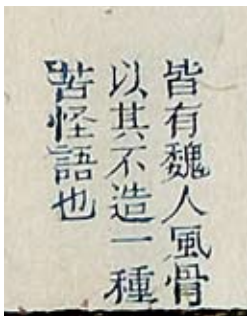 皆有魏人風骨
以其不造一種
苦怪語也